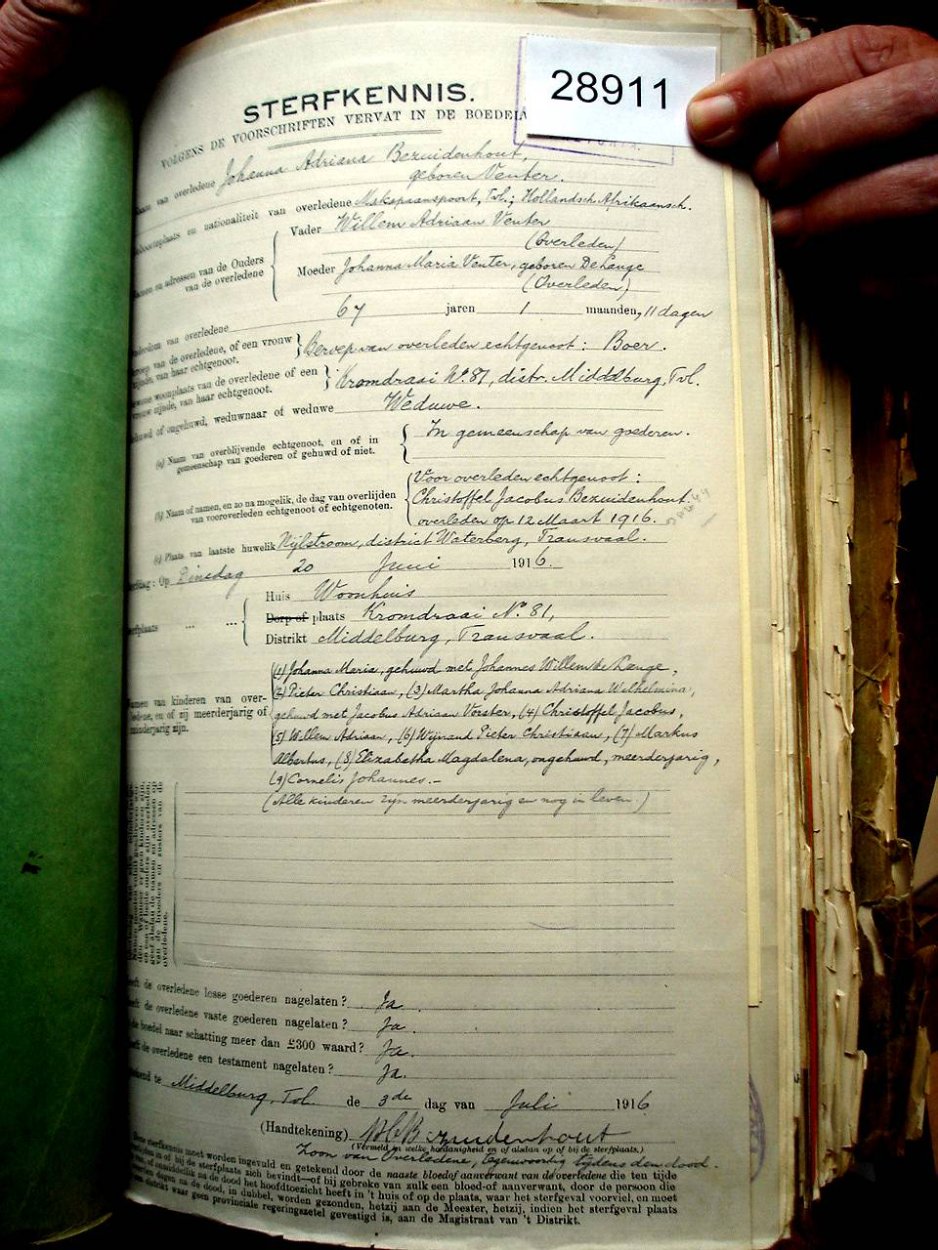 28911
STERFKENNIS.
VOLGENS DE VOORSCHRIFTEN VERVAT IN DE
van overledene Johanna Adriana Bezuidenhout,
geboren Venter.
en nationaliteit van overledene Makapaanspoort, Tvl.; Hollandsch Afrikaansch.
en adressen van de Ouders van de overledene
Vader Willem Adriaan Venter
(Overleden)
Moeder Johanna Maria Venter, geboren De Lange
(Overleden)
van overledene 67 jaren 1 maanden, 11 dagen
van de overledene, of een vrouw zijnde, van haar echtgenoot. Beroep van overleden echtgenoot: Boer.
woonplaats van de overledene of een vrouw zijnde, van haar echtgenoot. Kromdraai No. 81, distr. Middelburg, Tvl.
of ongehuwd, weduwnaar of weduwe Weduwe.
(a) Naam van overblijvende echtgenoot, en of in gemeenschap van goederen of gehuwd of niet. In gemeenschap van goederen.
(b) Naam of namen, en zo na mogelijk, de dag van overlijden van vooroverleden echtgenoot of echtgenoten.
Vooroverleden echtgenoot:
Christoffel Jacobus Bezuidenhout.
overleden op 12 Maart 1916.
(c) Plaats van laatste huwelik Nijlstroom, district Waterberg, Transvaal.
Op Dinsdag 20 Juni 1916.
Huis Woonhuis
Dorp of plaats Kromdraai No. 81,
Distrikt Middelburg, Transvaal.
van kinderen van overledene, en of zij meerderjarig of minderjarig zijn.
(1) Johanna Maria, gehuwd met Johannes Willem de Lange,
(2) Pieter Christiaan, (3) Martha Johanna Adriana Wilhelmina,
gehuwd met Jacobus Adriaan Vorster, (4) Christoffel Jacobus,
(5) Willem Adriaan, (6) Wijnand Pieter Christiaan, (7) Markus
Albertus, (8) Elizabetha Magdalena, ongehuwd, meerderjarig,
(9) Cornelis Johannes.–
(Alle kinderen zijn meerderjarig en nog in leven.)
de overledene losse goederen nagelaten? Ja.
de overledene vaste goederen nagelaten? Ja.
boedel naar schatting meer dan £300 waard? Ja.
de overledene een testament nagelaten? Ja.
te Middelburg, Tvl. de 3de dag van Juli 1916
(Handtekening) Bezuidenhout
(Vermeld in welke hoedanigheid en of alstan op of bij de sterfplaats.)
Zoon van Overledene, tegenwoordig tijdens den dood.
Deze sterfkennis moet worden ingevuld en getekend door de naaste bloed of aanverwant van de overledene die ten tijde
in of bij de sterfplaats zich bevindt—of bij gebreke van zulk een bloed-of aanverwant, door de persoon die
de dood het hoofdtoezicht heeft in 't huis of op de plaats, waar het sterfgeval voorviel, en moet
dagen na de dood, in dubbel, worden gezonden, hetzij aan de Meester, hetzij, indien het sterfgeval plaats
waar geen provinciale regeringszetel gevestigd is, aan de Magistraat van 't Distrikt.